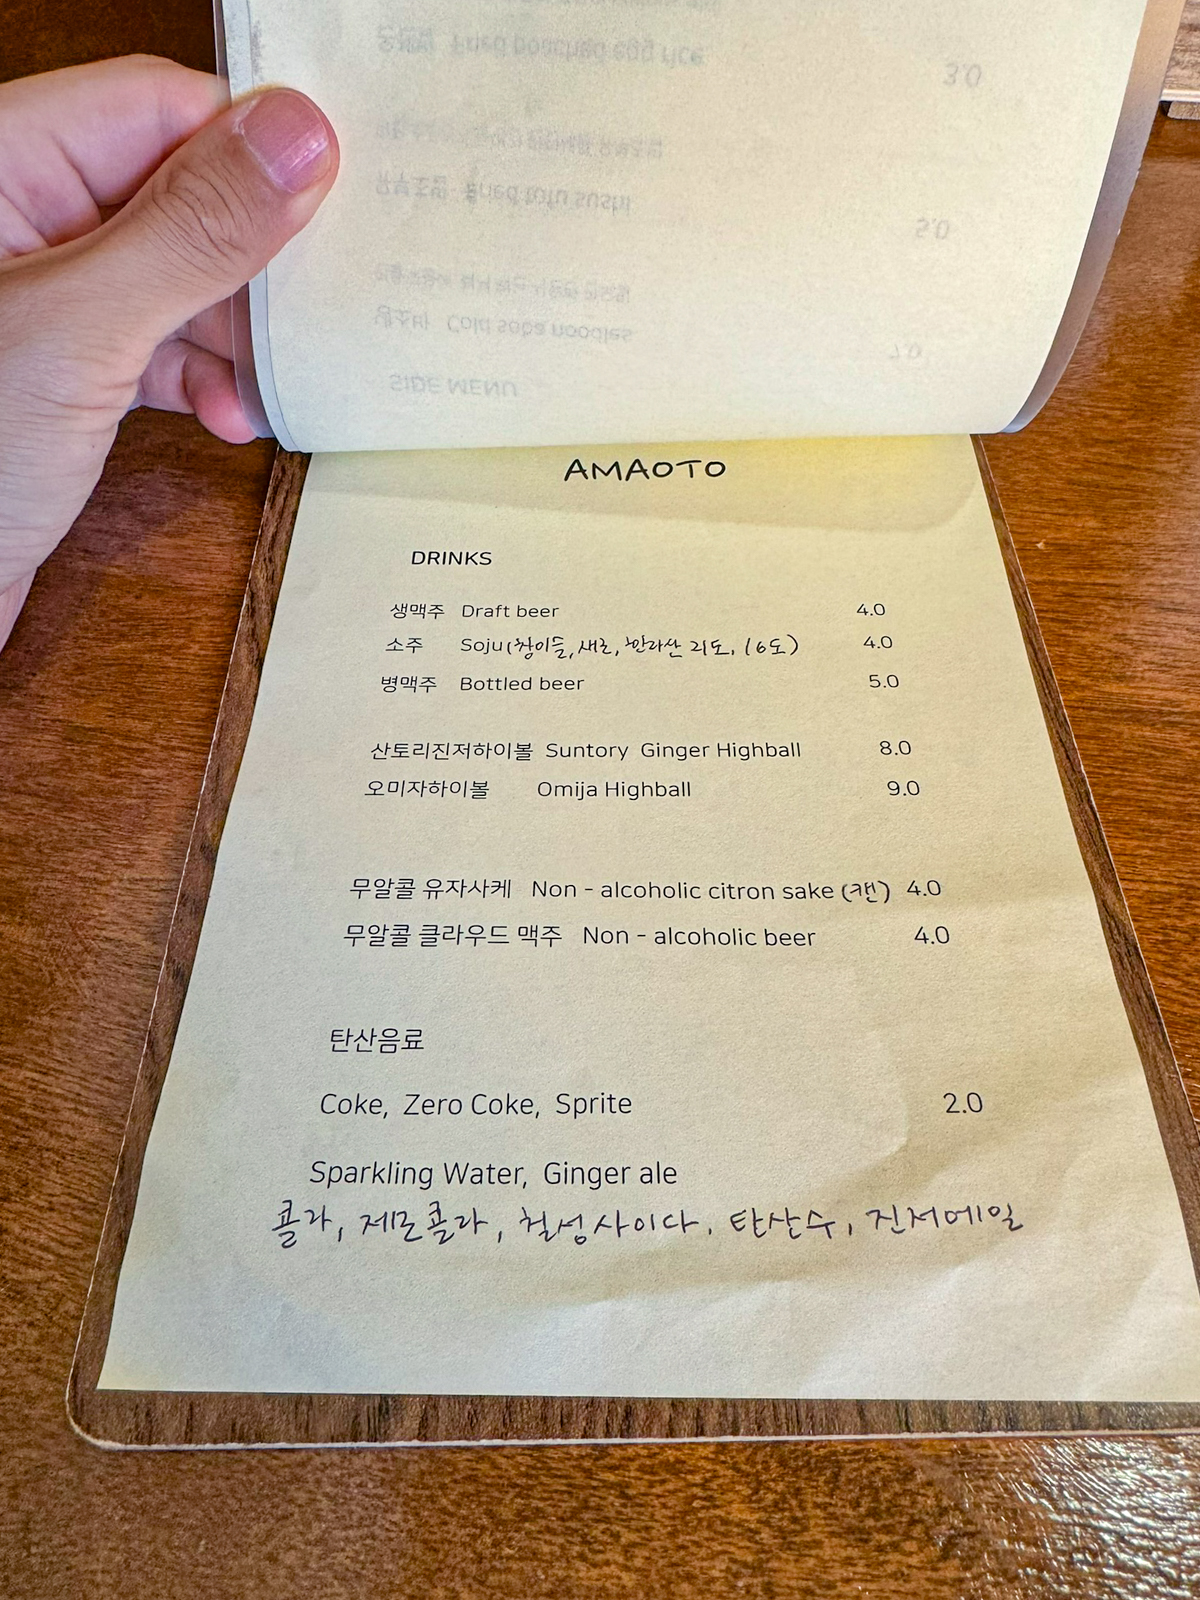 Fried poached egg rice 3.0
유부초밥 Fried tofu sushi 5.0
냉소바 Cold soba noodles 7.0
SIDE MENU
AMAOTO
DRINKS
생맥주 Draft beer 4.0
소주 Soju (참이슬, 새로, 한라산 21도, 16도) 4.0
병맥주 Bottled beer 5.0
산토리진저하이볼 Suntory Ginger Highball 8.0
오미자하이볼 Omija Highball 9.0
무알콜 유자사케 Non - alcoholic citron sake (캔) 4.0
무알콜 클라우드 맥주 Non - alcoholic beer 4.0
탄산음료
Coke, Zero Coke, Sprite 2.0
Sparkling Water, Ginger ale
콜라, 제로콜라, 칠성사이다, 탄산수, 진저에일